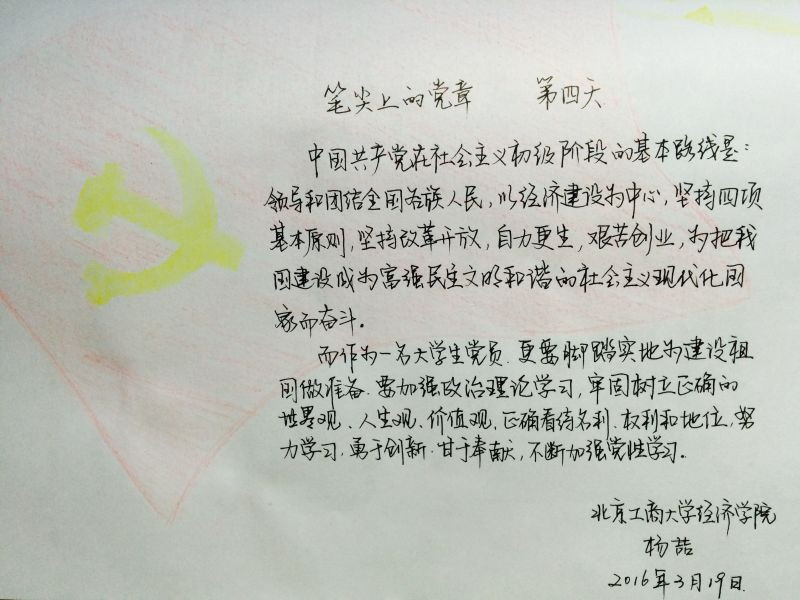 笔尖上的党章 第四天
中国共产党在社会主义初级阶段的基本路线是：
领导和团结全国各族人民，以经济建设为中心，坚持四项
基本原则，坚持改革开放，自力更生，艰苦创业，为把我
国建设成为富强民主文明和谐的社会主义现代化国
家而奋斗。
而作为一名大学生党员，更要脚踏实地为建设祖
国做准备。要加强政治理论学习，牢固树立正确的
世界观、人生观、价值观，正确看待名利、权利和地位，努
力学习，勇于创新，甘于奉献，不断加强党性学习。
北京工商大学经济学院
杨喆
2016年3月19日